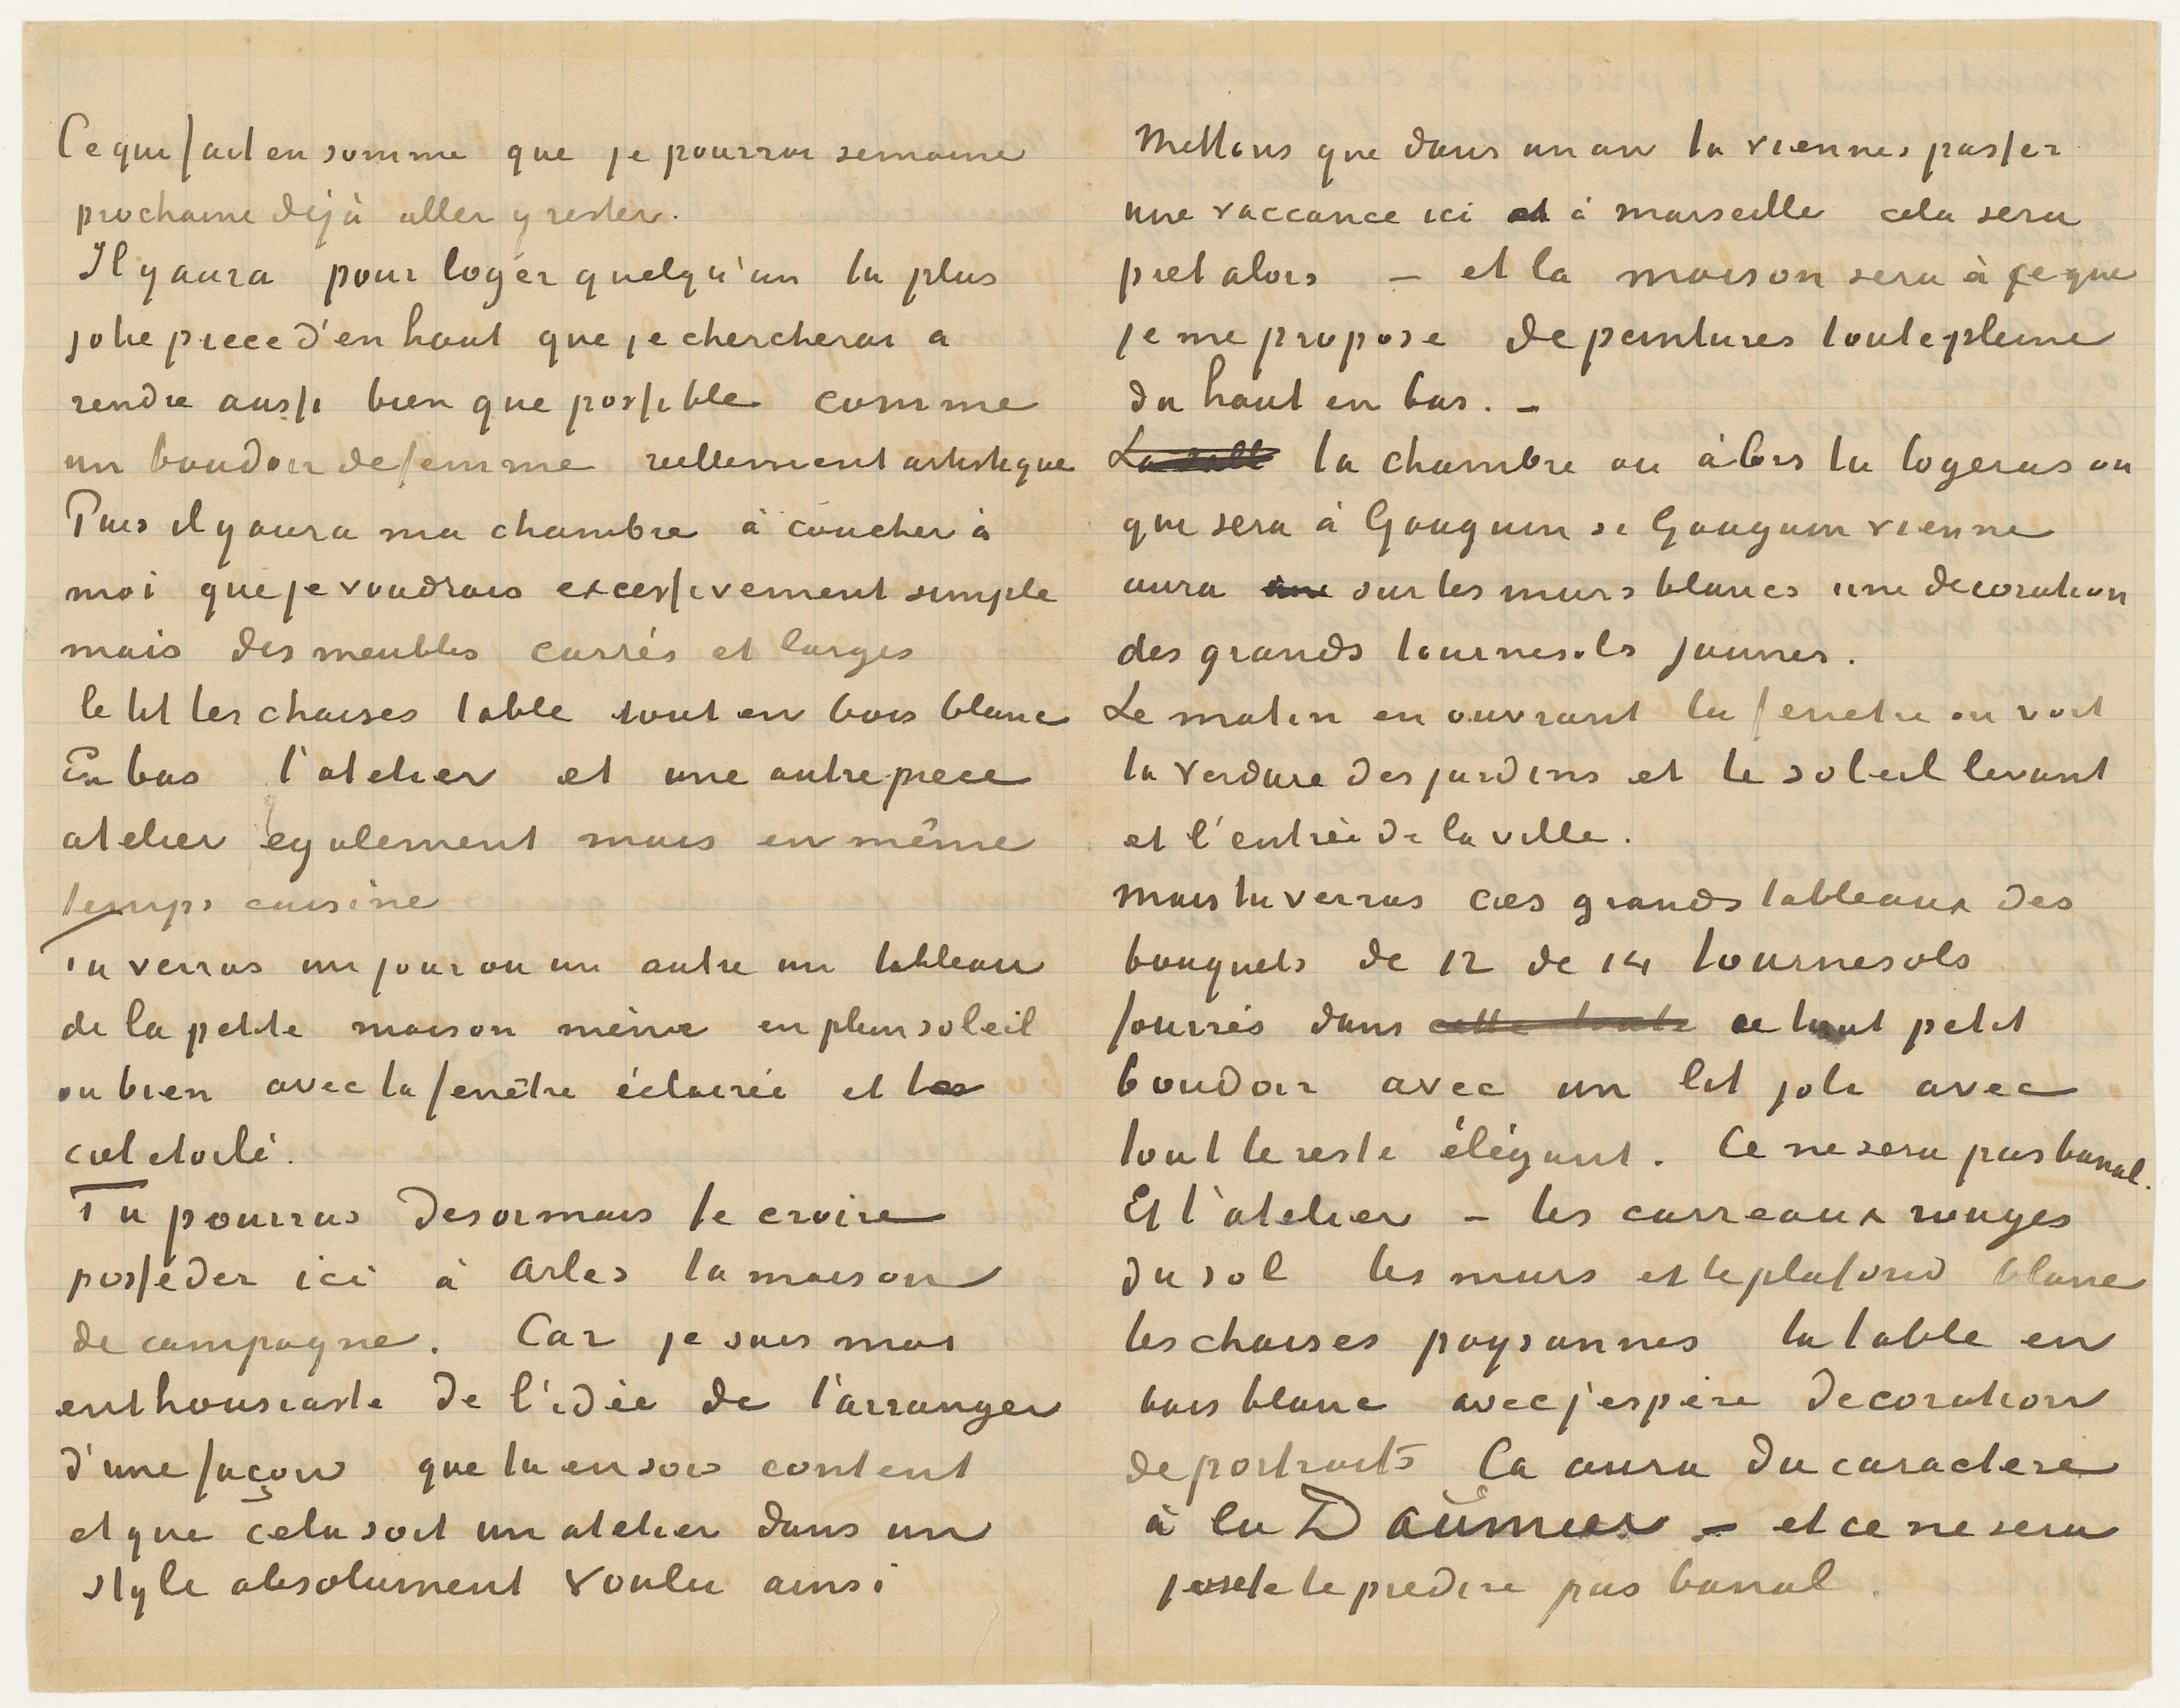 Ce qui fait en somme que je pourrai semaine
prochaine déjà aller y rester.
Il y aura pour loger quelqu'un la plus
jolie piece d'en haut que je chercherai a
rendre aussi bien que possible comme
un boudoir de femme reellement artistique
Puis il y aura ma chambre à coucher à
moi que je voudrais excessivement simple
mais des meubles carrés et larges
le lit les chaises table tout en bois blanc
En bas l'atelier et une autre piece
atelier egalement mais en même
temps cuisine
Tu verras un jour ou un autre un tableau
de la petite maison même en plein soleil
ou bien avec la fenêtre éclairée et le
ciel etoilé.
Tu pourras desormais te croire
posséder ici à Arles ta maison
de campagne. Car je suis moi
enthousiaste de l'idée de l'arranger
d'une façon que tu en sois content
et que cela soit un atelier dans un
style absolument voulu ainsi
Mettons que dans un an tu viennes passer
une vaccance ici et à marseille cela sera
pret alors – et la maison sera à ce que
je me propose de peintures toute pleine
du haut en bas. –
La salle la chambre ou àlors tu logeras ou
qui sera à Gauguin si Gauguin vienne
aura une sur les murs blancs une decoration
des grands tournesols jaunes.
Le matin en ouvrant la fenetre on voit
la verdure des jardins et le soleil levant
et l'entrée de la ville.
mais tu verras ces grands tableaux des
bouquets de 12 de 14 tournesols
fourrés dans cette toute ce tout petit
boudoir avec un lit joli avec
tout le reste élégant. Ce ne sera pas banal.
Et l'atelier – les carreaux rouges
du sol les murs et le plafond blanc
les chaises paysannes la table en
bois blanc avec j'espère decoration
de portraits Ca aura du caractere
à la Daumier – et ce ne sera
j'ose te le predire pas banal.